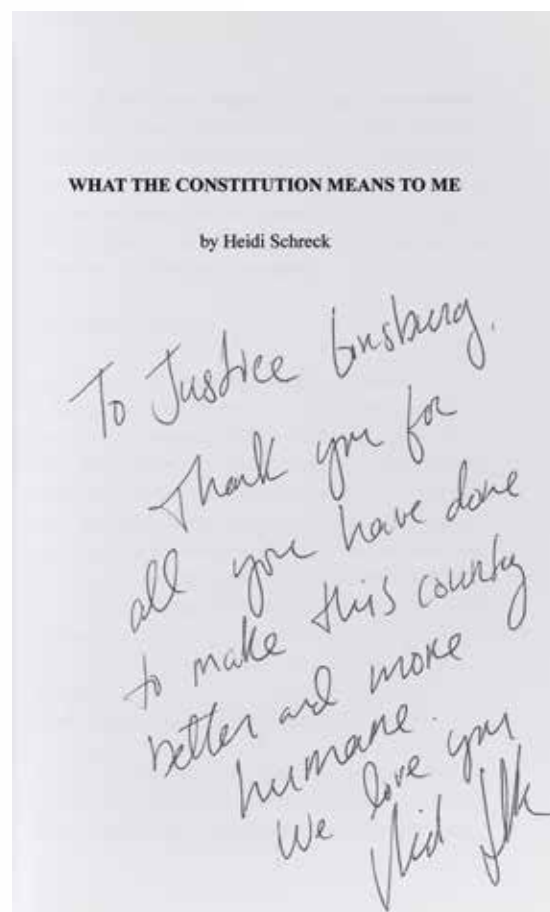 WHAT THE CONSTITUTION MEANS TO ME
by Heidi Schreck
To Justice Ginsburg.
Thank you for
all you have done
to make this country
better and more
humane.
We love you